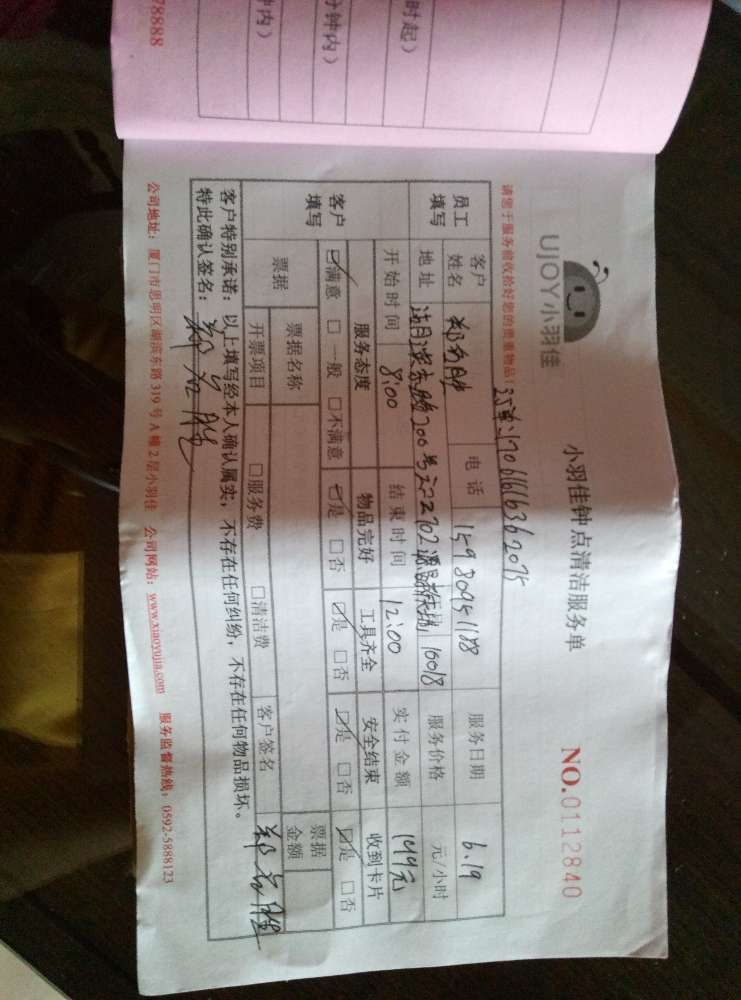 UJOY小羽佳
小羽佳钟点清洁服务单
NO.0112840
请您于服务前收拾好您的贵重物品！
员工填写
客户姓名
电话
服务日期 6.19
地址
服务价格 元/小时
开始时间 8:00 结束时间 12:00 实付金额 149元
客户填写
服务态度 物品完好 工具齐全 安全结束 收到卡片
☑满意 □一般 □不满意 ☑是 □否 ☑是 □否 ☑是 □否 ☑是 □否
票据 票据名称 票据金额
开票项目 □服务费 □清洁费 客户签名
客户特别承诺：以上填写经本人确认属实，不存在任何纠纷，不存在任何物品损坏。
特此确认签名：
公司地址：厦门市思明区湖滨东路319号A幢2层小羽佳 公司网站：www.xiaoyujia.com 服务监督热线：0592-5888123
时起）
分钟内）
钟内）
78888